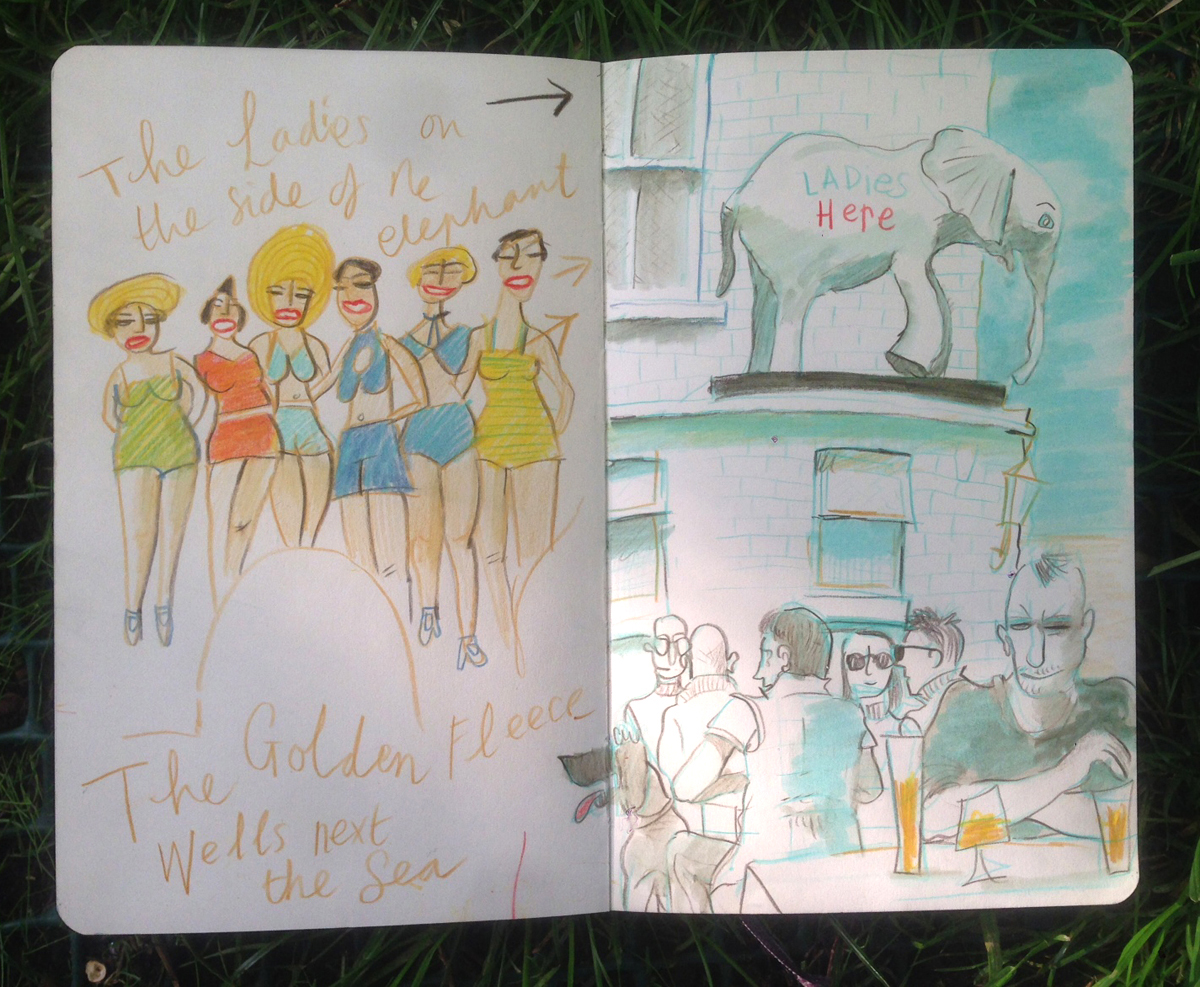 The Ladies on
the side of the
elephant
The Golden Fleece
Wells next
the Sea
LADies
Here